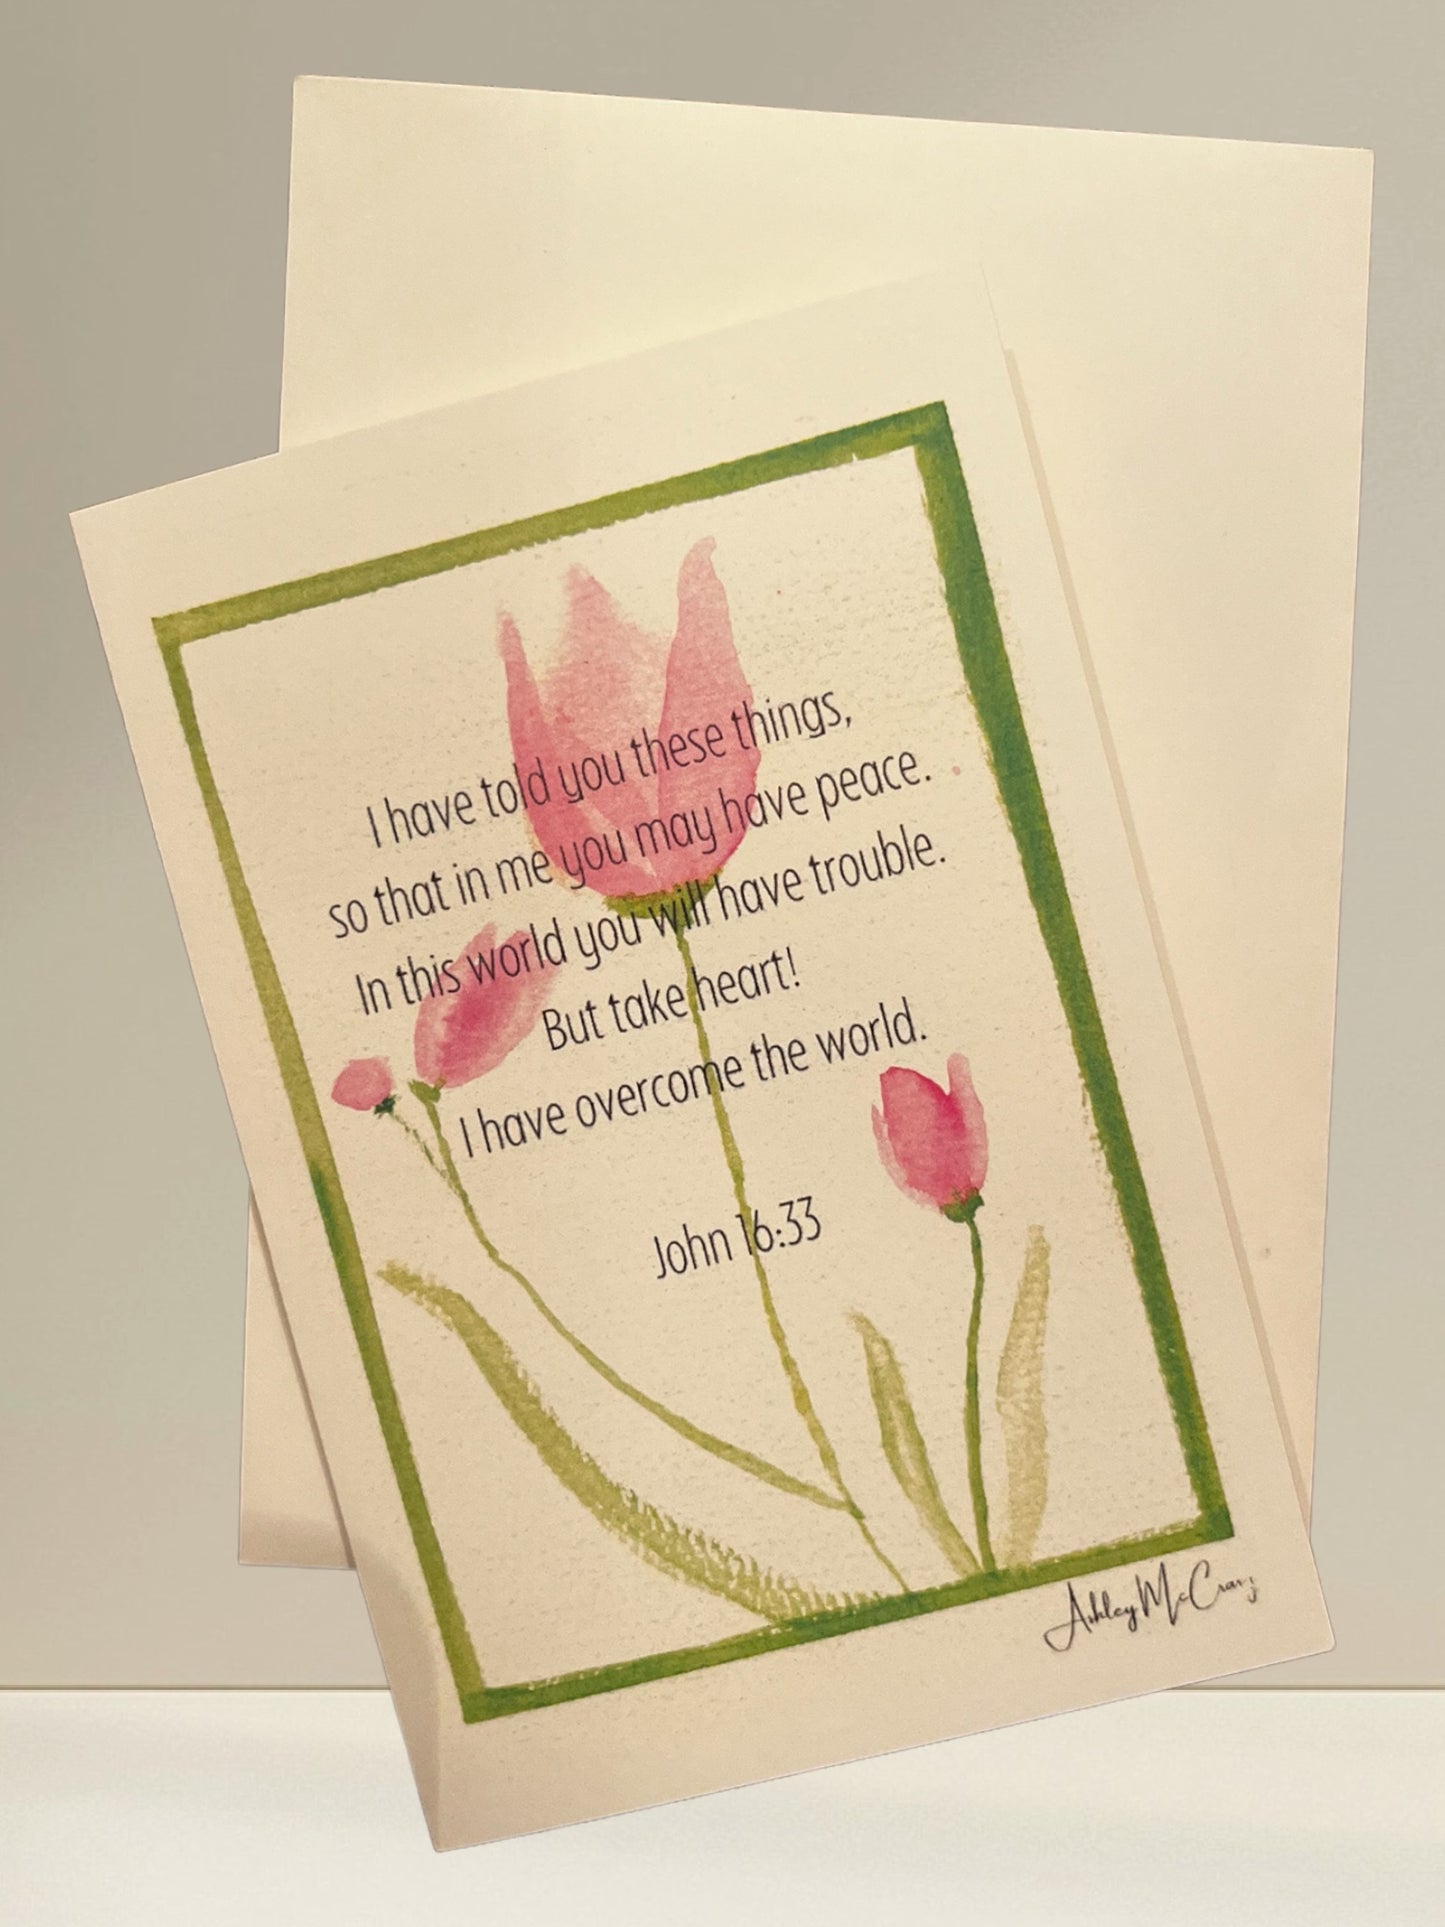 I have told you these things,
so that in me you may have peace.
In this world you will have trouble.
But take heart!
I have overcome the world.
John 16:33
Ashley McCrary